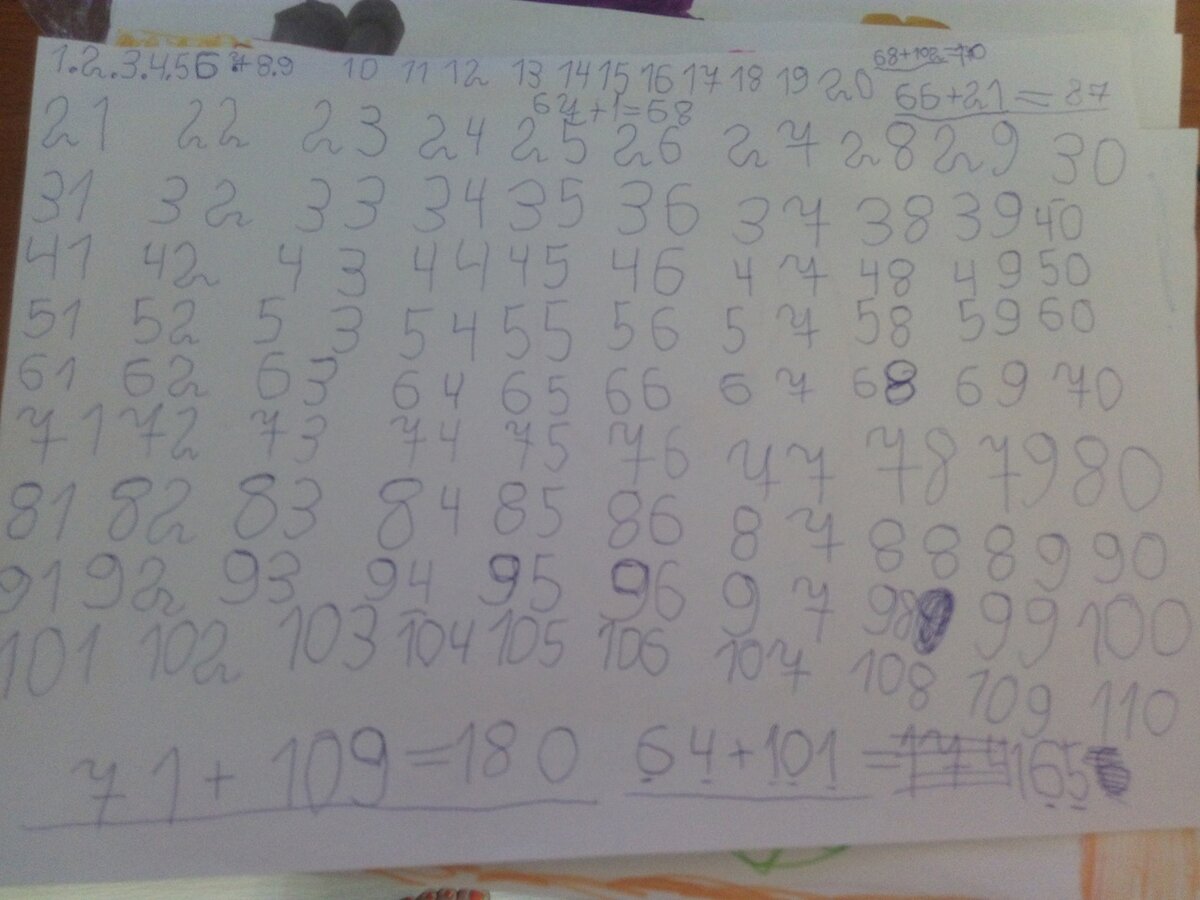 1.2.3.4.5 6 7 8.9 10 11 12 13 14 15 16 17 18 19 20
68+102=170
66+21=87
67+1=68
21 22 23 24 25 26 27 28 29 30
31 32 33 34 35 36 37 38 39 40
41 42 43 44 45 46 47 48 49 50
51 52 53 54 55 56 57 58 59 60
61 62 63 64 65 66 67 68 69 70
71 72 73 74 75 76 77 78 79 80
81 82 83 84 85 86 87 88 89 90
91 92 93 94 95 96 97 98 99 100
101 102 103 104 105 106 107 108 109 110
71+109=180 64+101=165